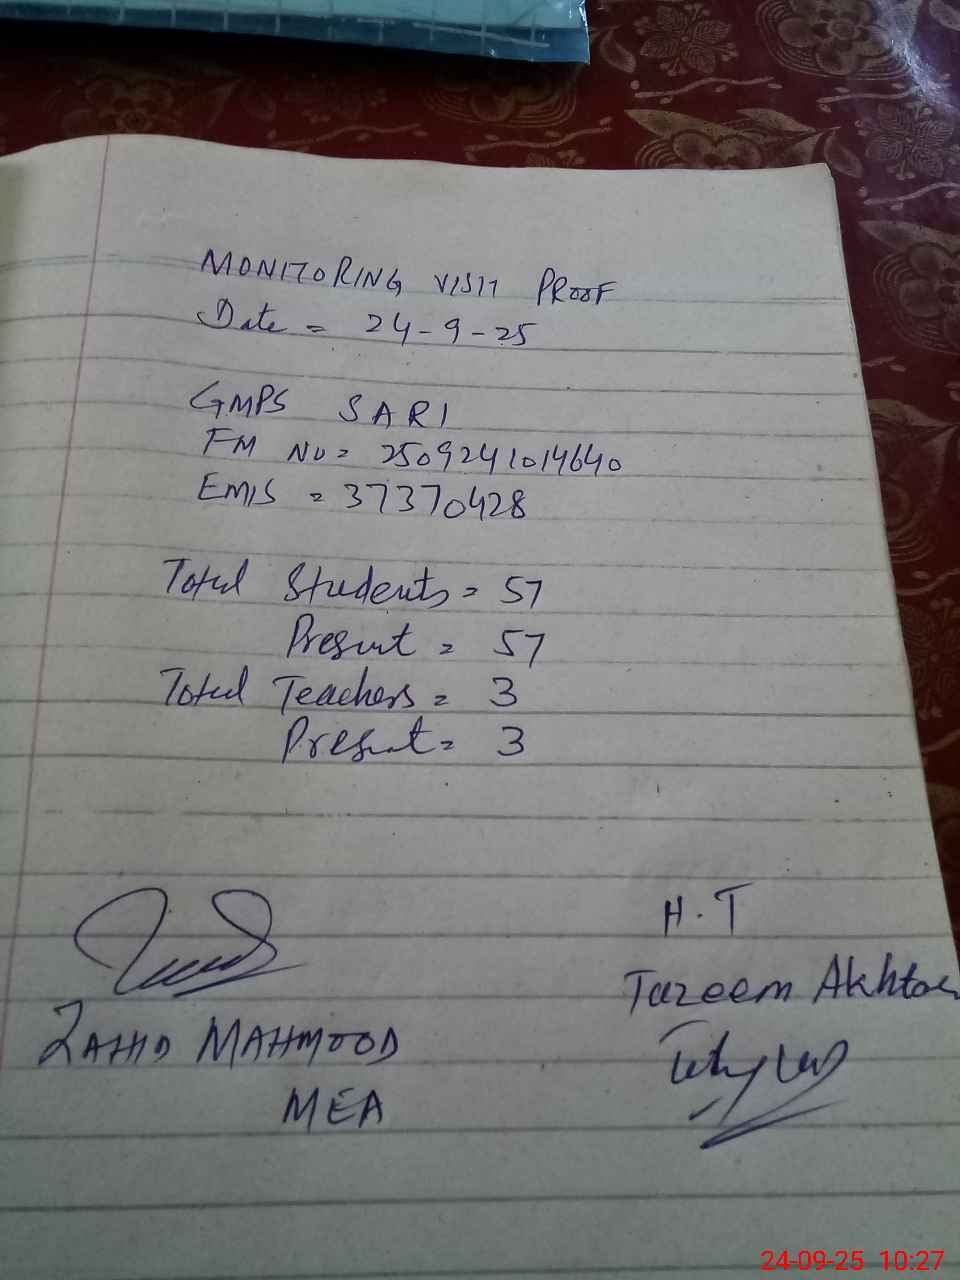 MONITORING VISIT PROOF
Date = 24-9-25
GMPS SARI
FM NO = 2509241014640
EMIS = 37370428
Total Students = 57
Present = 57
Total Teachers = 3
Present = 3
H.T
Tazeem Akhtar
ZAHID MAHMOOD
MEA
24-09-25 10:27